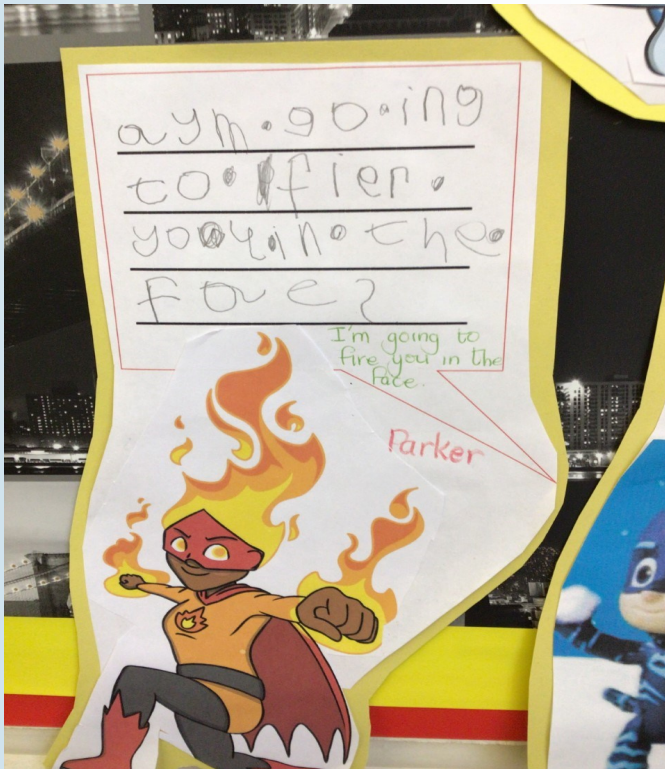 aym.go.ing
to. fier.
you.in.the.
face?
I'm going to
fire you in the
face.
Parker